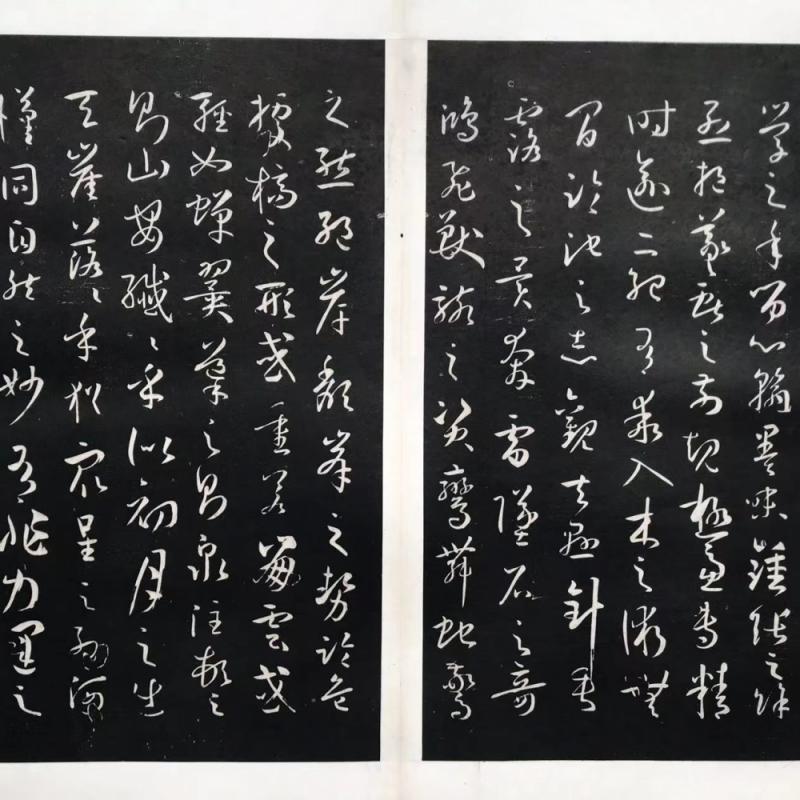 學之年留心翰墨味鍾張之餘
烈挹羲獻之前規極慮專精
時逾二紀有乖入木之術無
間臨池之志觀夫懸針垂
露之異奔雷墜石之奇
鴻飛獸駭之資鸞舞蛇驚
之態絕岸頹峯之勢臨危
據槁之形或重若崩雲或
輕如蟬翼導之則泉注頓之
則山安纖〻乎似初月之出
天崖落〻乎猶衆星之列河
漢同自然之妙有非力運之